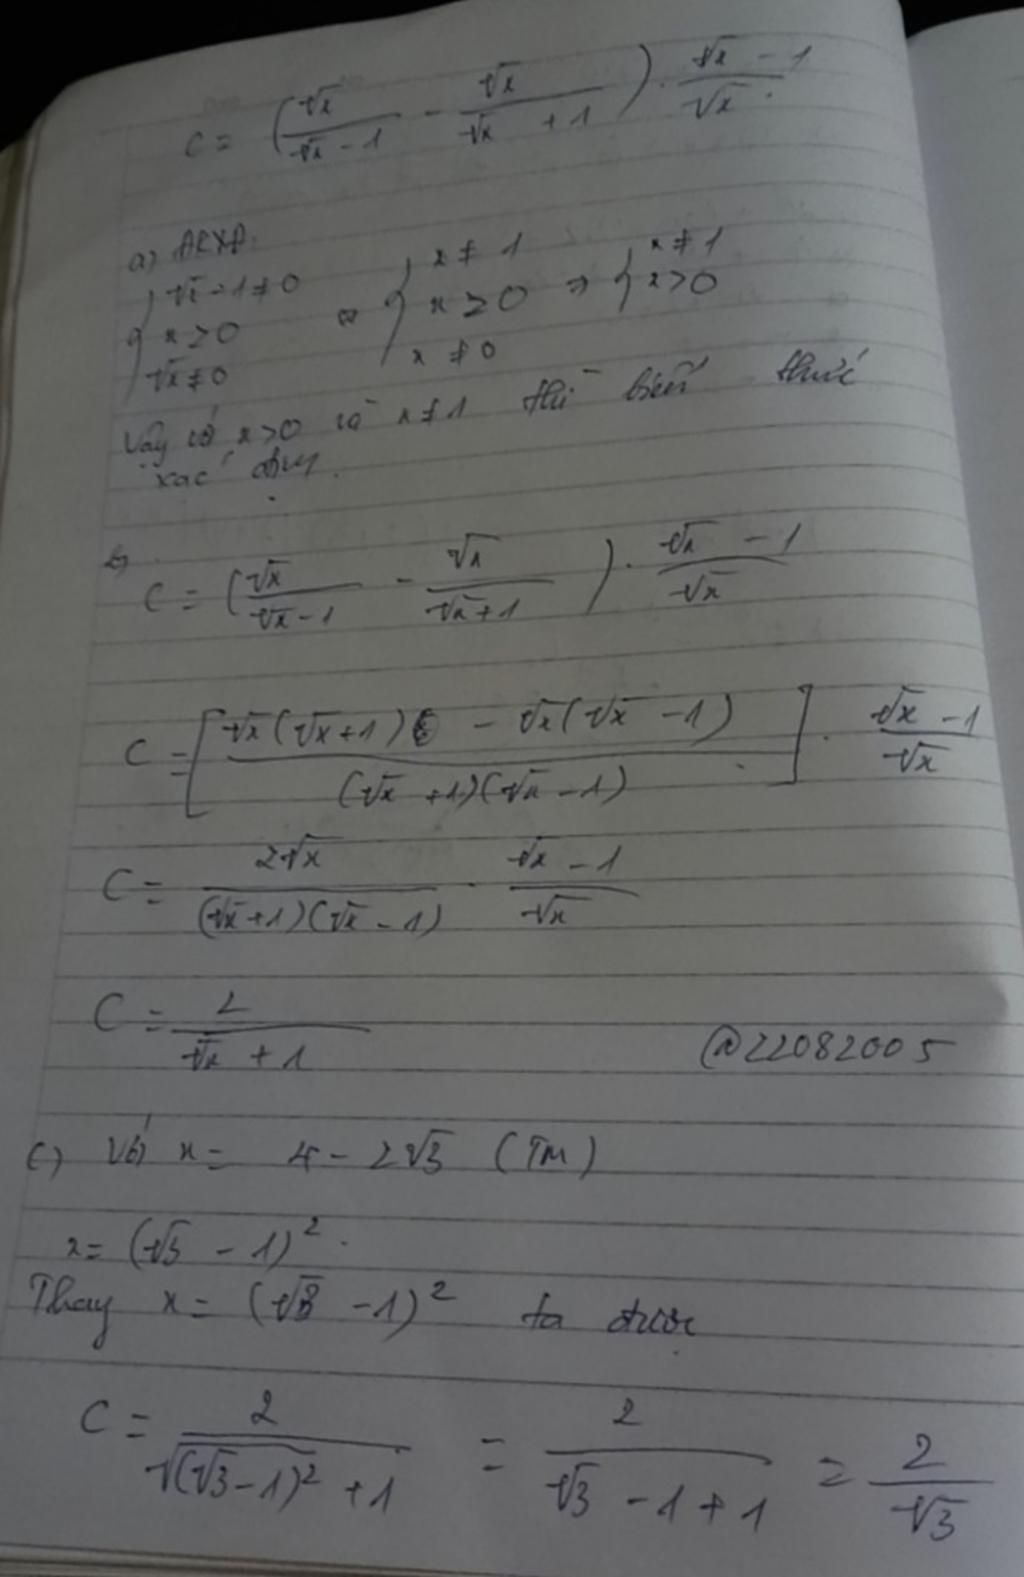 C = (√x/(√x - 1) - √x/(√x + 1)) · (√x - 1)/√x
a) ĐKXĐ:
{ √x - 1 ≠ 0 ; x ≥ 0 ; √x ≠ 0 ⇔ { x ≠ 1 ; x ≥ 0 ; x ≠ 0 ⇒ { x ≠ 1 ; x > 0
Vậy với x > 0 và x ≠ 1 thì biểu thức
xác định.
b)
C = (√x/(√x - 1) - √x/(√x + 1)) · (√x - 1)/√x
C = [(√x(√x + 1) - √x(√x - 1))/((√x + 1)(√x - 1))] · (√x - 1)/√x
C = 2√x/((√x + 1)(√x - 1)) · (√x - 1)/√x
C = 2/(√x + 1)
@22082005
c) Với x = 4 - 2√3 (TM)
x = (√3 - 1)².
Thay x = (√3 - 1)² ta được
C = 2/(√(√3 - 1)² + 1) = 2/(√3 - 1 + 1) = 2/√3